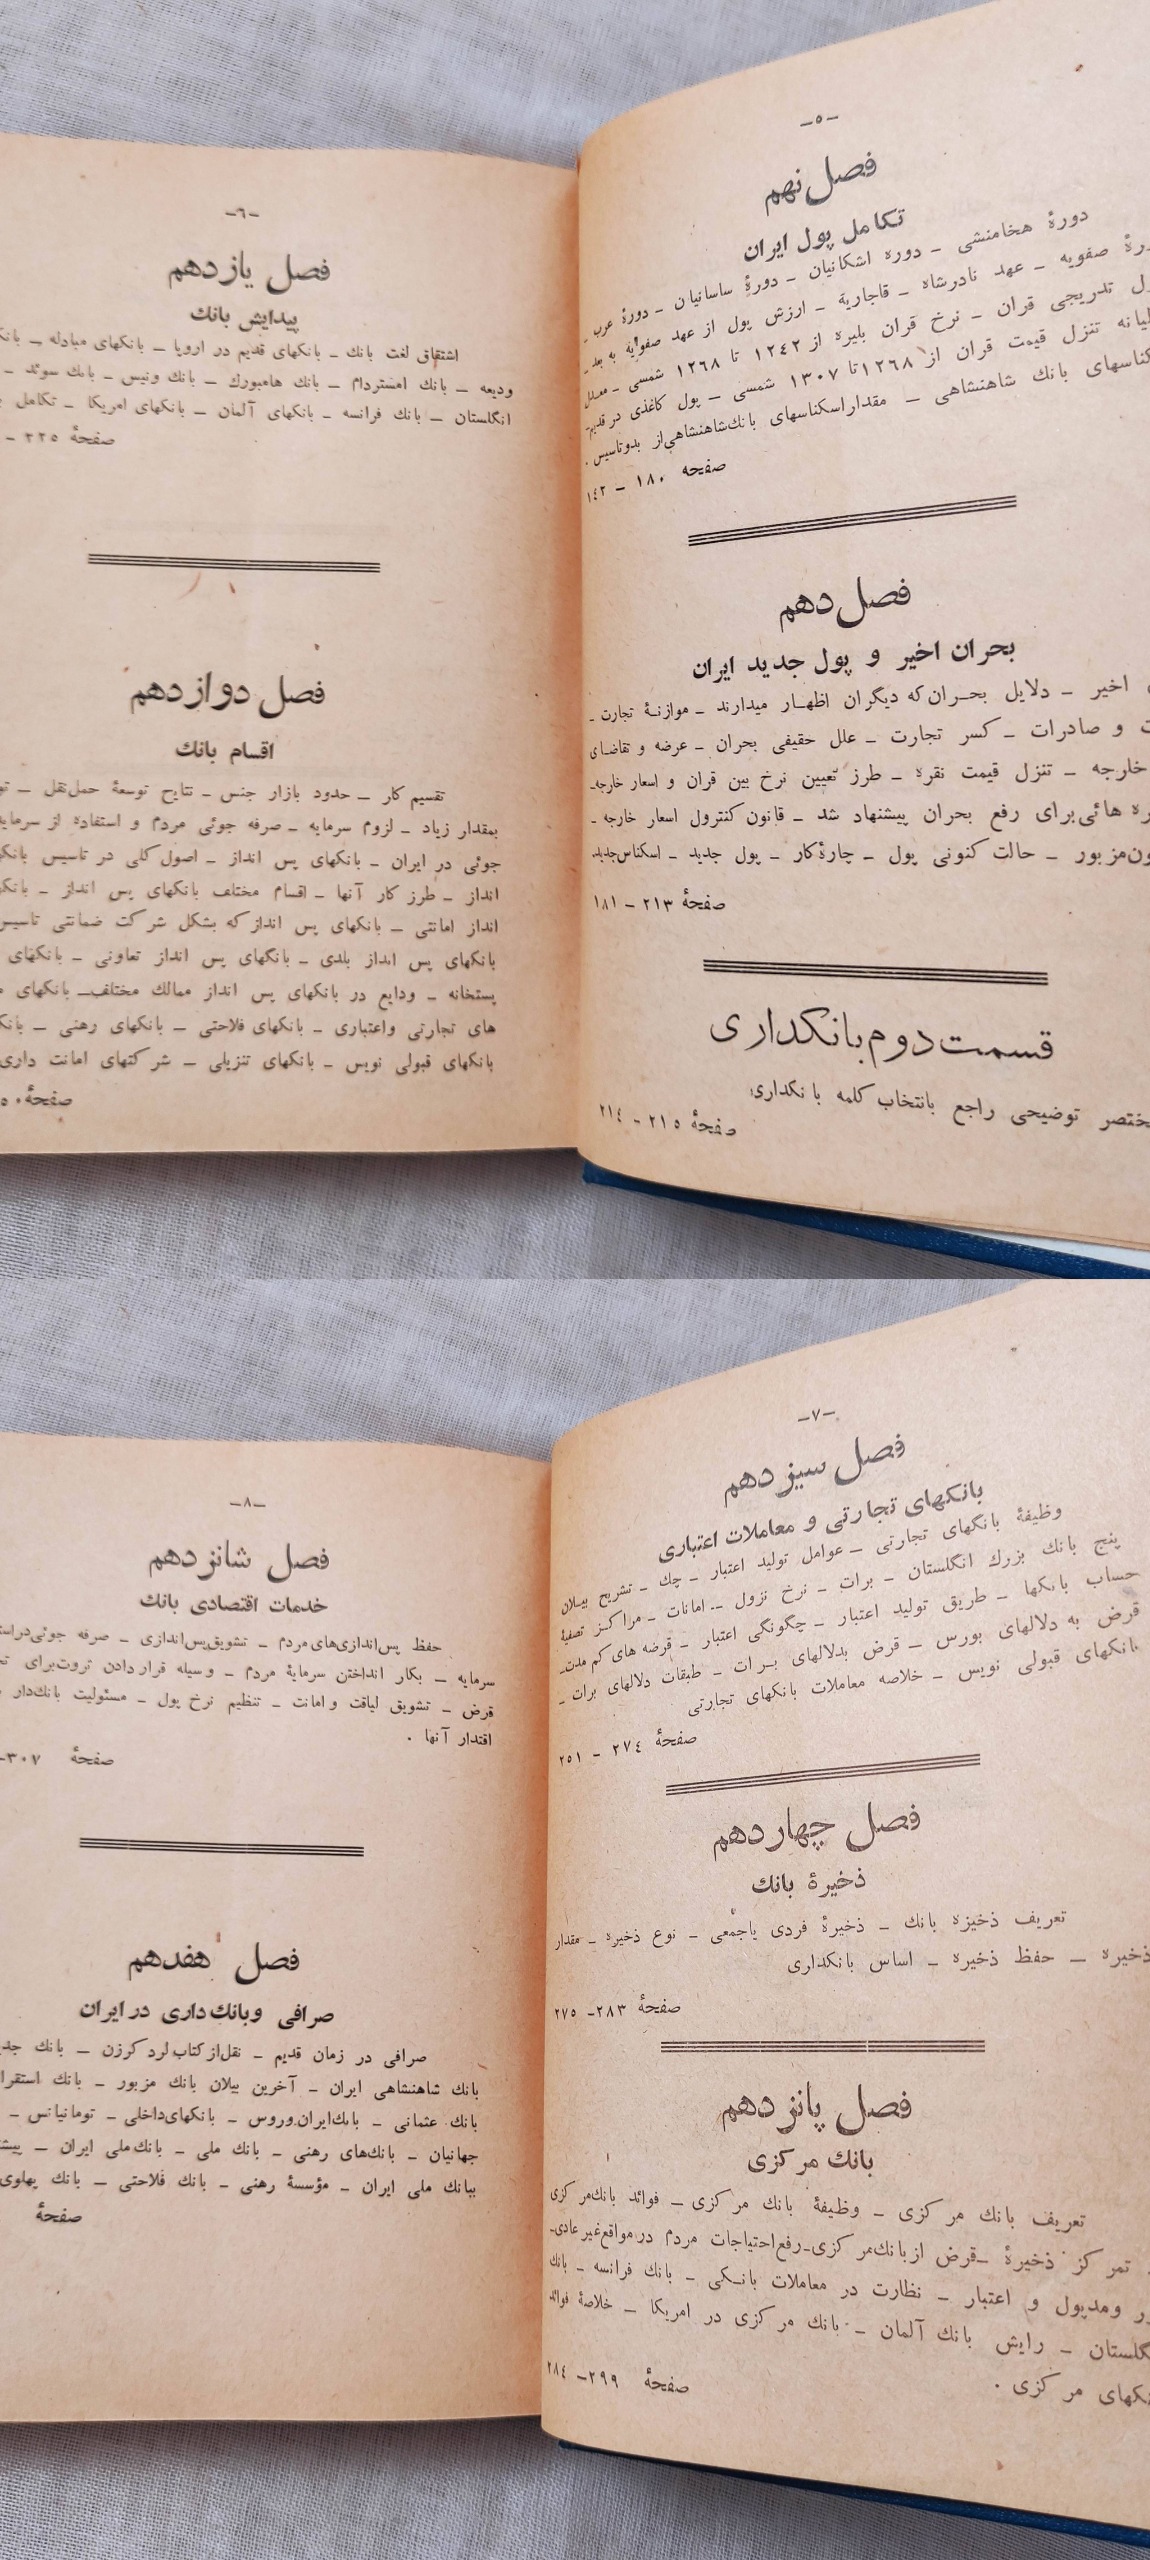 -٥-
فصل نهم
تکامل پول ایران
دورهٔ هخامنشی - دوره اشکانیان - دورهٔ ساسانیان - دورهٔ عرب -
صفویه - عهد نادرشاه - قاجاریة - ارزش پول از عهد صفویه به بعد -
تدریجی قران - نرخ قران بلیره از ١٢٤٢ تا ١٢٦٨ شمسی - معدل
تنزل قیمت قران از ١٢٦٨ تا ١٣٠٧ شمسی - پول کاغذی در قدیم-
بانك شاهنشاهی - مقدار اسکناسهای بانك شاهنشاهی از بدو تاسیس .
صفحه ١٨٠ - ١٤٢
فصل دهم
بحران اخیر و پول جدید ایران
اخیر - دلایل بحران که دیگران اظهار میدارند - موازنهٔ تجارت -
و صادرات - کسر تجارت - علل حقیقی بحران - عرضه و تقاضای
خارجه - تنزل قیمت نقره - طرز تعیین نرخ بین قران و اسعار خارجه-
هائی برای رفع بحران پیشنهاد شد - قانون کنترول اسعار خارجه -
مزبور - حالت کنونی پول - چارهٔ کار - پول جدید - اسکناس جدید.
صفحهٔ ٢١٣ - ١٨١
قسمت دوم بانکداری
توضیحی راجع بانتخاب کلمه بانکداری
صفحهٔ ٢١٥ - ٢١٤
-٦-
فصل یازدهم
پیدایش بانك
اشتقاق لغت بانك - بانکهای قدیم در اروپا - بانکهای مبادله -
ودیعه - بانك امستردام - بانك هامبورك - بانك ونیس - بانك سوئد -
انگلستان - بانك فرانسه - بانکهای آلمان - بانکهای امریکا - تکامل
صفحهٔ ٢٢٥ -
فصل دوازدهم
اقسام بانك
تقسیم کار - حدود بازار جنس - نتایج توسعهٔ حمل نقل -
بمقدار زیاد - لزوم سرمایه - صرفه جوئی مردم و استفاده از
جوئی در ایران - بانکهای پس انداز - اصول کلی در تاسیس
انداز - طرز کار آنها - اقسام مختلف بانکهای پس انداز -
انداز امانتی - بانکهای پس انداز که بشکل شرکت ضمانتی
بانکهای پس انداز بلدی - بانگهای پس انداز تعاونی - بانکهای
پستخانه - ودایع در بانکهای پس انداز ممالك مختلف- بانکهای
های تجارتی واعتباری - بانکهای فلاحتی - بانکهای رهنی -
بانکهای قبولی نویس - بانکهای تنزیلی - شرکتهای امانت داری
صفحهٔ
-٧-
فصل سیزدهم
بانکهای تجارتی و معاملات اعتباری
وظیفهٔ بانگهای تجارتی - عوامل تولید اعتبار - چك - تشریح بیلان
پنج بانك بزرك انگلستان - برات - نرخ نزول - امانات - مراکز تصفیهٔ
حساب بانکها - طریق تولید اعتبار - چگونگی اعتبار - قرضه های کم مدت-
قرض به دلالهای بورس - قرض بدلالهای برات - طبقات دلالهای برات -
بانکهای قبولی نویس - خلاصه معاملات بانکهای تجارتی
صفحهٔ ٢٧٤ - ٢٥١
فصل چهاردهم
ذخیرهٔ بانك
تعریف ذخیزه بانك - ذخیرهٔ فردی یاجمعی - نوع ذخیره - مقدار
ذخیره - حفظ ذخیره - اساس بانکداری
صفحهٔ ٢٨٣- ٢٧٥
فصل پانزدهم
بانك مرکزی
تعریف بانك مرکزی - وظیفهٔ بانك مرکزی - فوائد بانك مرکزی
تمرکز ذخیرهٔ -قرض از بانك مرکزی-رفع احتیاجات مردم در مواقع غیرعادی-
ومدپول و اعتبار - نظارت در معاملات بانکی - بانك فرانسه - بانك
- رایش بانك آلمان - بانك مرکزی در امریکا - خلاصهٔ فوائد
مرکزی .
صفحهٔ ٢٩٩- ٢٨٤
-٨-
فصل شانزدهم
خدمات اقتصادی بانك
حفظ پس‌اندازی‌های مردم - تشویق پس‌اندازی - صرفه جوئی
سرمایه - بکار انداختن سرمایهٔ مردم - وسیله قرار دادن ثروت برای
قرض - تشویق لیاقت و امانت - تنظیم نرخ پول - مسئولیت بانك‌دار
اقتدار آنها .
صفحهٔ ٣٠٧-
فصل هفدهم
صرافی وبانك داری در ایران
صرافی در زمان قدیم - نقل از کتاب لرد کرزن - بانك
بانك شاهنشاهی ایران - آخرین بیلان بانك مزبور - بانك
بانك عثمانی - بانك ایران وروس - بانکهای داخلی - تومانیانس -
جهانیان - بانك‌های رهنی - بانك ملی - بانك ملی ایران -
بیانك ملی ایران - مؤسسهٔ رهنی - بانك فلاحتی - بانك پهلوی
صفحهٔ